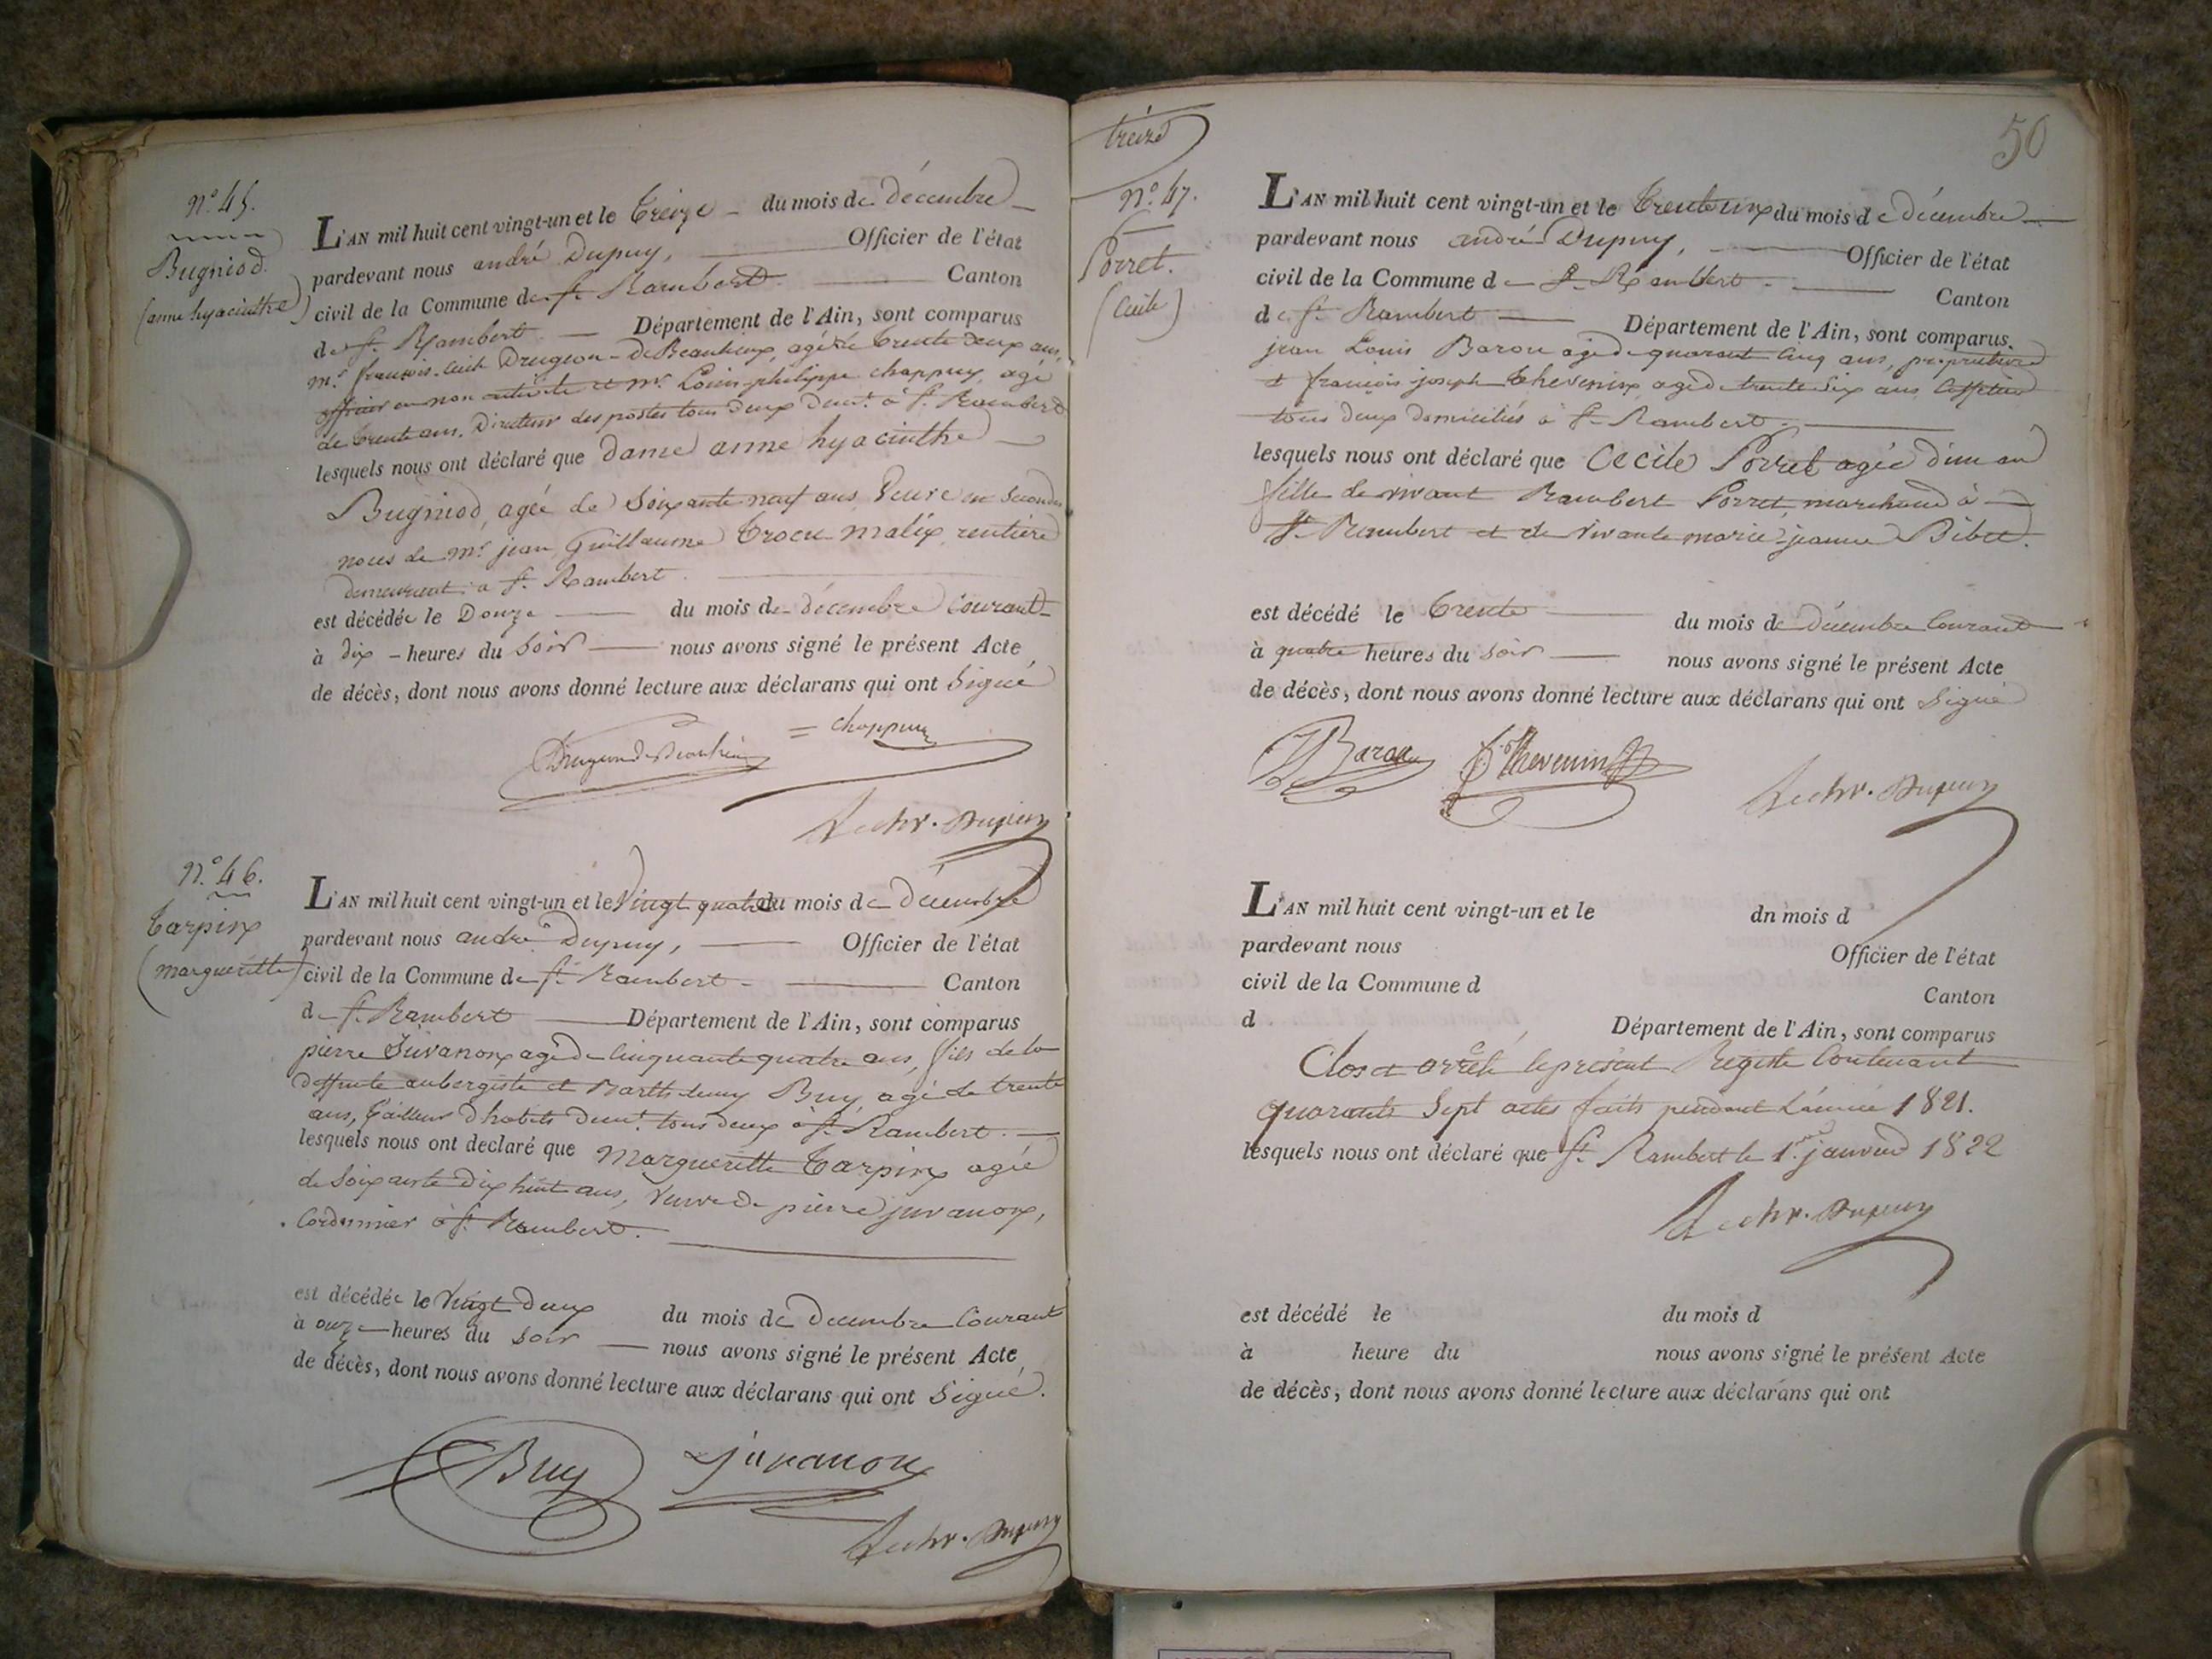 n.º 45.
Bugniod
(anne hyacinthe)
L'AN mil huit cent vingt-un et le treize du mois de décembre
pardevant nous andré Dupuy, Officier de l'état
civil de la Commune de St. Rambert Canton
de St. Rambert Département de l'Ain, sont comparus
mr. françois-Cécile Drugeon-de Beaulieux, agé de trente deux ans,
officier en non activité et mr. Louis philippe chappuy agé
de trente ans. Directeur des postes tous deux demt. à St. Rambert
lesquels nous ont déclaré que dame anne hyacinthe
Bugniod, agée de Soixante neuf ans Veuve en Secondes
noces de mr. jean Guillaume Trocu malix rentière
demeurant à St. Rambert.
est décédée le Douze du mois de décembre Courant
à dix heures du Soir nous avons signé le présent Acte
de décès, dont nous avons donné lecture aux déclarans qui ont Signé
chappuy
Dupuy
n.º 46.
Tarpin
(margueritte)
L'AN mil huit cent vingt-un et le Vingt quatre du mois de décembre
pardevant nous andré Dupuy, Officier de l'état
civil de la Commune de St. Rambert Canton
de St. Rambert Département de l'Ain, sont comparus
pierre Juvanon agé de Cinquante quatre ans, fils de la
deffunte aubergiste et Barthelemy Buy agé de trente
ans, tailleur d'habits demt. tous deux à St. Rambert.
lesquels nous ont declaré que Margueritte Tarpin agée
de Soixante dix huit ans, Veuve de pierre juvanon,
Cordonnier à St. Rambert.
est décédée le Vingt Deux du mois de Decembre Courant
à onze heures du Soir nous avons signé le présent Acte
de décès, dont nous avons donné lecture aux déclarans qui ont Signé.
Buy juvanon
Dupuy
treize
50
n.º 47.
Porret.
(Cécile)
L'AN mil huit cent vingt-un et le trente un du mois de décembre
pardevant nous andré Dupuy, Officier de l'état
civil de la Commune de St. Rambert. Canton
de St. Rambert Département de l'Ain, sont comparus.
jean Louis Baron agé de quarante Cinq ans, propriétaire
et françois joseph thevenin agé de trente Six ans Caffetier
tous deux domiciliés à St. Rambert.
lesquels nous ont déclaré que Cecile Porret agée d'un an
fille de vivant Rambert Porret, marchand à
St. Rambert et de vivante marie-jeanne Bibet.
est décédé le trente du mois de décembre Courant
à quatre heures du Soir nous avons signé le présent Acte
de décès, dont nous avons donné lecture aux déclarans qui ont Signé
Baron Thevenin
Dupuy
L'AN mil huit cent vingt-un et le dn mois d
pardevant nous Officier de l'état
civil de la Commune d Canton
d Département de l'Ain, sont comparus
Clos et arrêté le présent Registre Contenant
quarante Sept actes faits pendant L'année 1821.
lesquels nous ont déclaré que St. Rambert le 1er. janvier 1822
Dupuy
est décédé le du mois d
à heure du nous avons signé le présent Acte
de décès, dont nous avons donné lecture aux déclarans qui ont